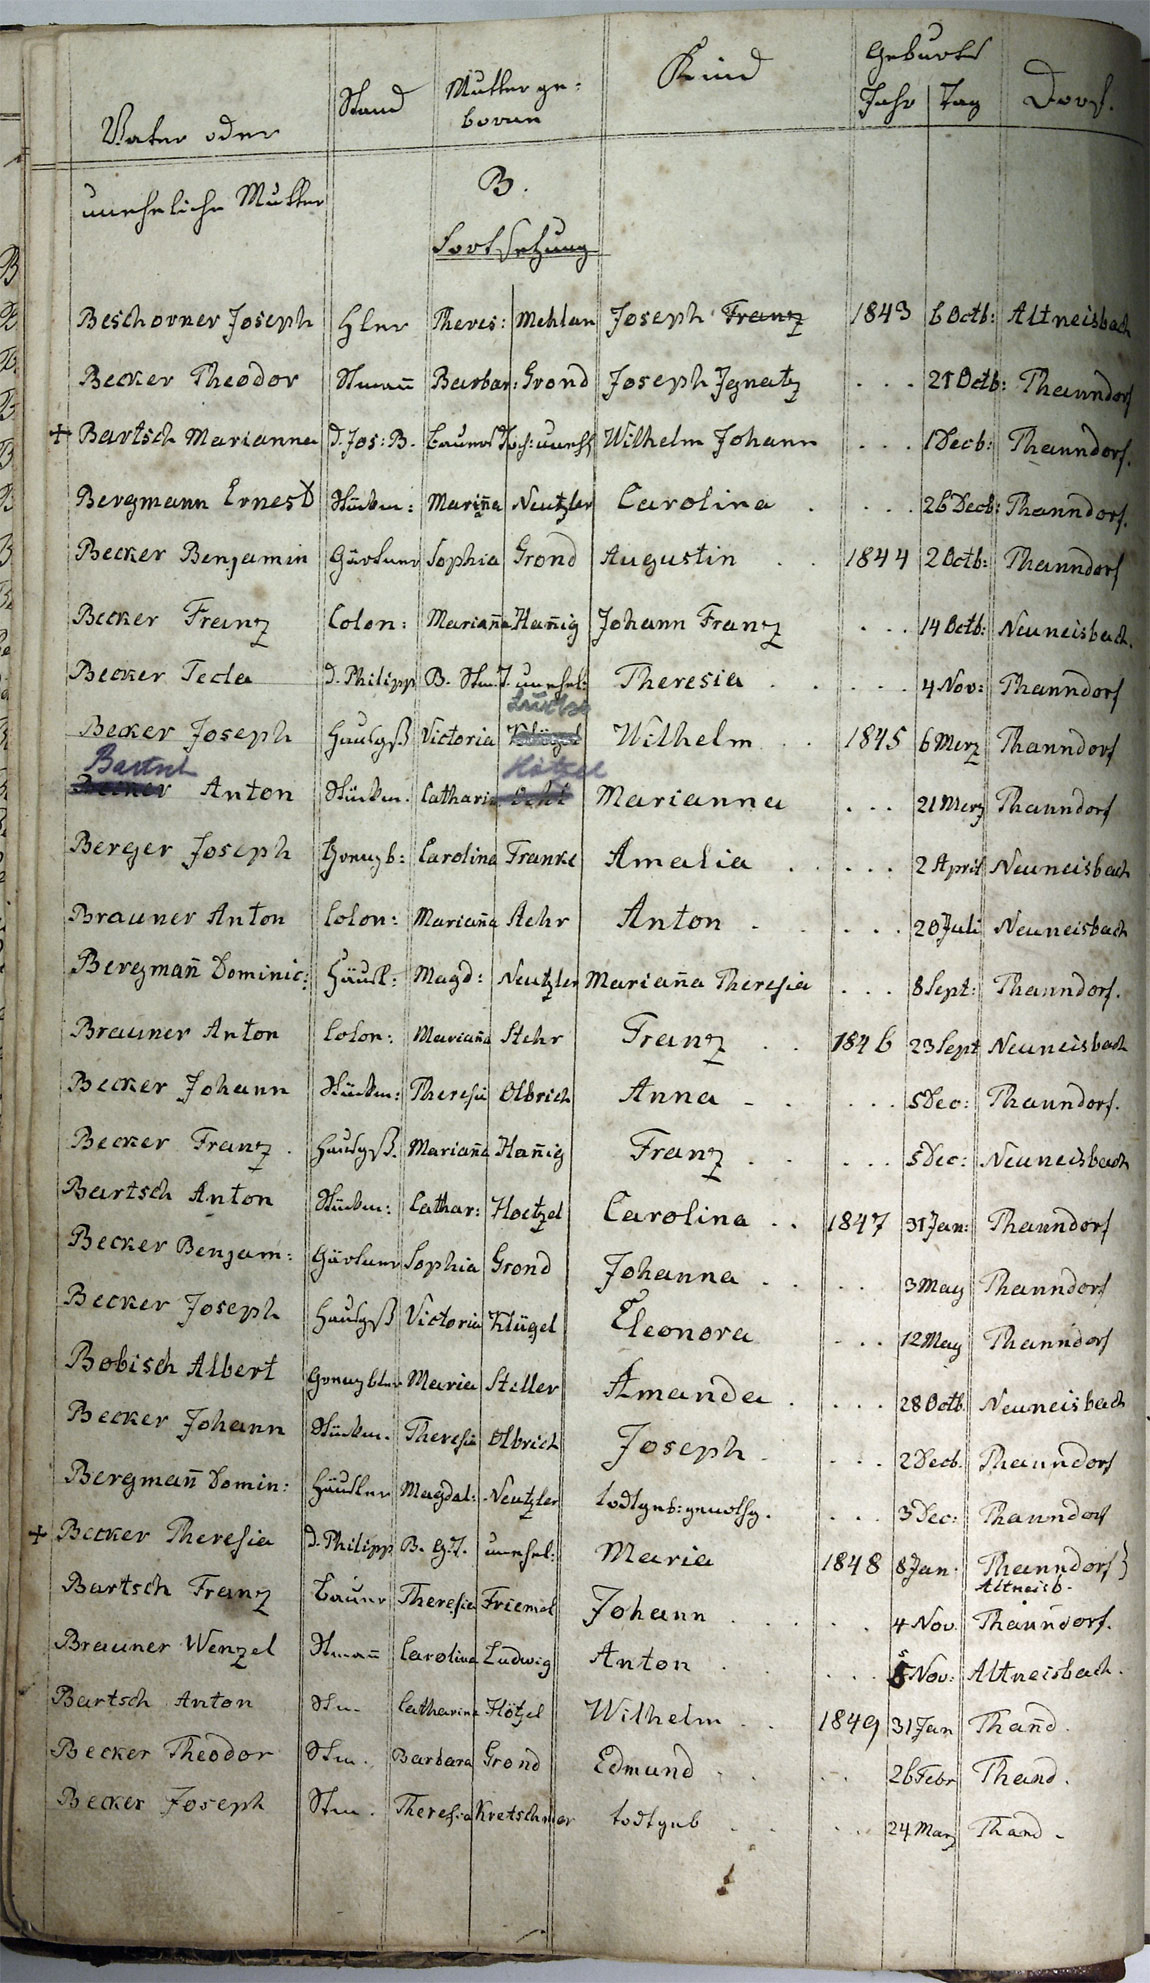 Vater oder Stand Mutter ge= boren Kind Geburts Jahr Tag Dorf.
uneheliche Mutter
B.
Fortsetzung
Beschorner Joseph Hler Theres: Mehlan Joseph Franz 1843 6 Octb: Altneisbach
Becker Theodor Stman̄ Barbar: Grond Joseph Ignatz . . . 21 Octb: Thanndorf
+ Bartsch Marianna d. Jos: B. Bauers Toch: unehl Wilhelm Johann . . . 1 Decb: Thanndorf.
Bergmann Ernest Stückm: Marian̄a Neutzler Carolina . . . . 26 Decb: Thanndorf.
Becker Benjamin Gärtner Sophia Grond Augustin . . 1844 2 Octb: Thanndorf
Becker Franz Colon: Marian̄a Han̄ig Johann Franz . . . 14 Octb: Neuneisbach.
Becker Tecla d. Philipp B. Stm. T. unehel: Theresia . . . . . 4 Nov: Thanndorf
Becker Joseph Hausgß Victoria Klügel Wilhelm . . 1845 6 Merz Thanndorf
Bartsch Hötzel
Becker Anton Stückm. Catharia Marianna . . . 21 Merz Thanndorf
Berger Joseph Grenzb: Carolina Franke Amalia . . . . . 2 April Neuneisbach
Brauner Anton Colon: Marian̄a Stehr Anton . . . . . 20 Juli Neuneisbach
Bergman̄ Dominic: Häusl: Magd: Neutzler Marian̄a Theresia . . . 8 Sept: Thanndorf.
Brauner Anton Colon: Marian̄a Stehr Franz . . 1846 23 Sept Neuneisbach
Becker Johann Stückm: Theresia Olbrich Anna - . . . . 5 Dec: Thanndorf.
Becker Franz. Hausgß. Marian̄a Han̄ig Franz . . . . . 5 Dec: Neuneisbach
Bartsch Anton Stückm: Cathar: Hoetzel Carolina . . 1847 31 Jan: Thanndorf
Becker Benjam: Gärtner Sophia Grond Johanna . . . . 3 May Thanndorf
Becker Joseph Hausgß Victoria Klügel Eleonora . . . 12 May Thanndorf
Bobisch Albert Grenzbler Maria Steller Amanda . . . . 28 Octb. Neuneisbach
Becker Johann Stückm. Theresia Olbrich Joseph . . . . 2 Decb. Thanndorf
Bergman̄ Domin: Häusler Magdal: Neutzler todtgeb: . . . 3 Dec: Thanndorf
+ Becker Theresia d. Philipp B. G. T. unehel: Maria 1848 8 Jan: Thanndorf}
Altneisb.
Bartsch Franz Bauer Theresia Friemel Johann . . . . . 4 Nov. Thanndorf.
Brauner Wenzel Stman̄ Carolina Ludwig Anton . . . . . 5 Nov: Altneisbach.
Bartsch Anton Stm. Catharina Hötzel Wilhelm . . 1849 31 Jan Than̄d.
Becker Theodor Stm. Barbara Grond Edmund . . . . 26 Febr Thand.
Becker Joseph Stm. Theresia Kretschmer todtgeb . . . . 24 Marz Thand.